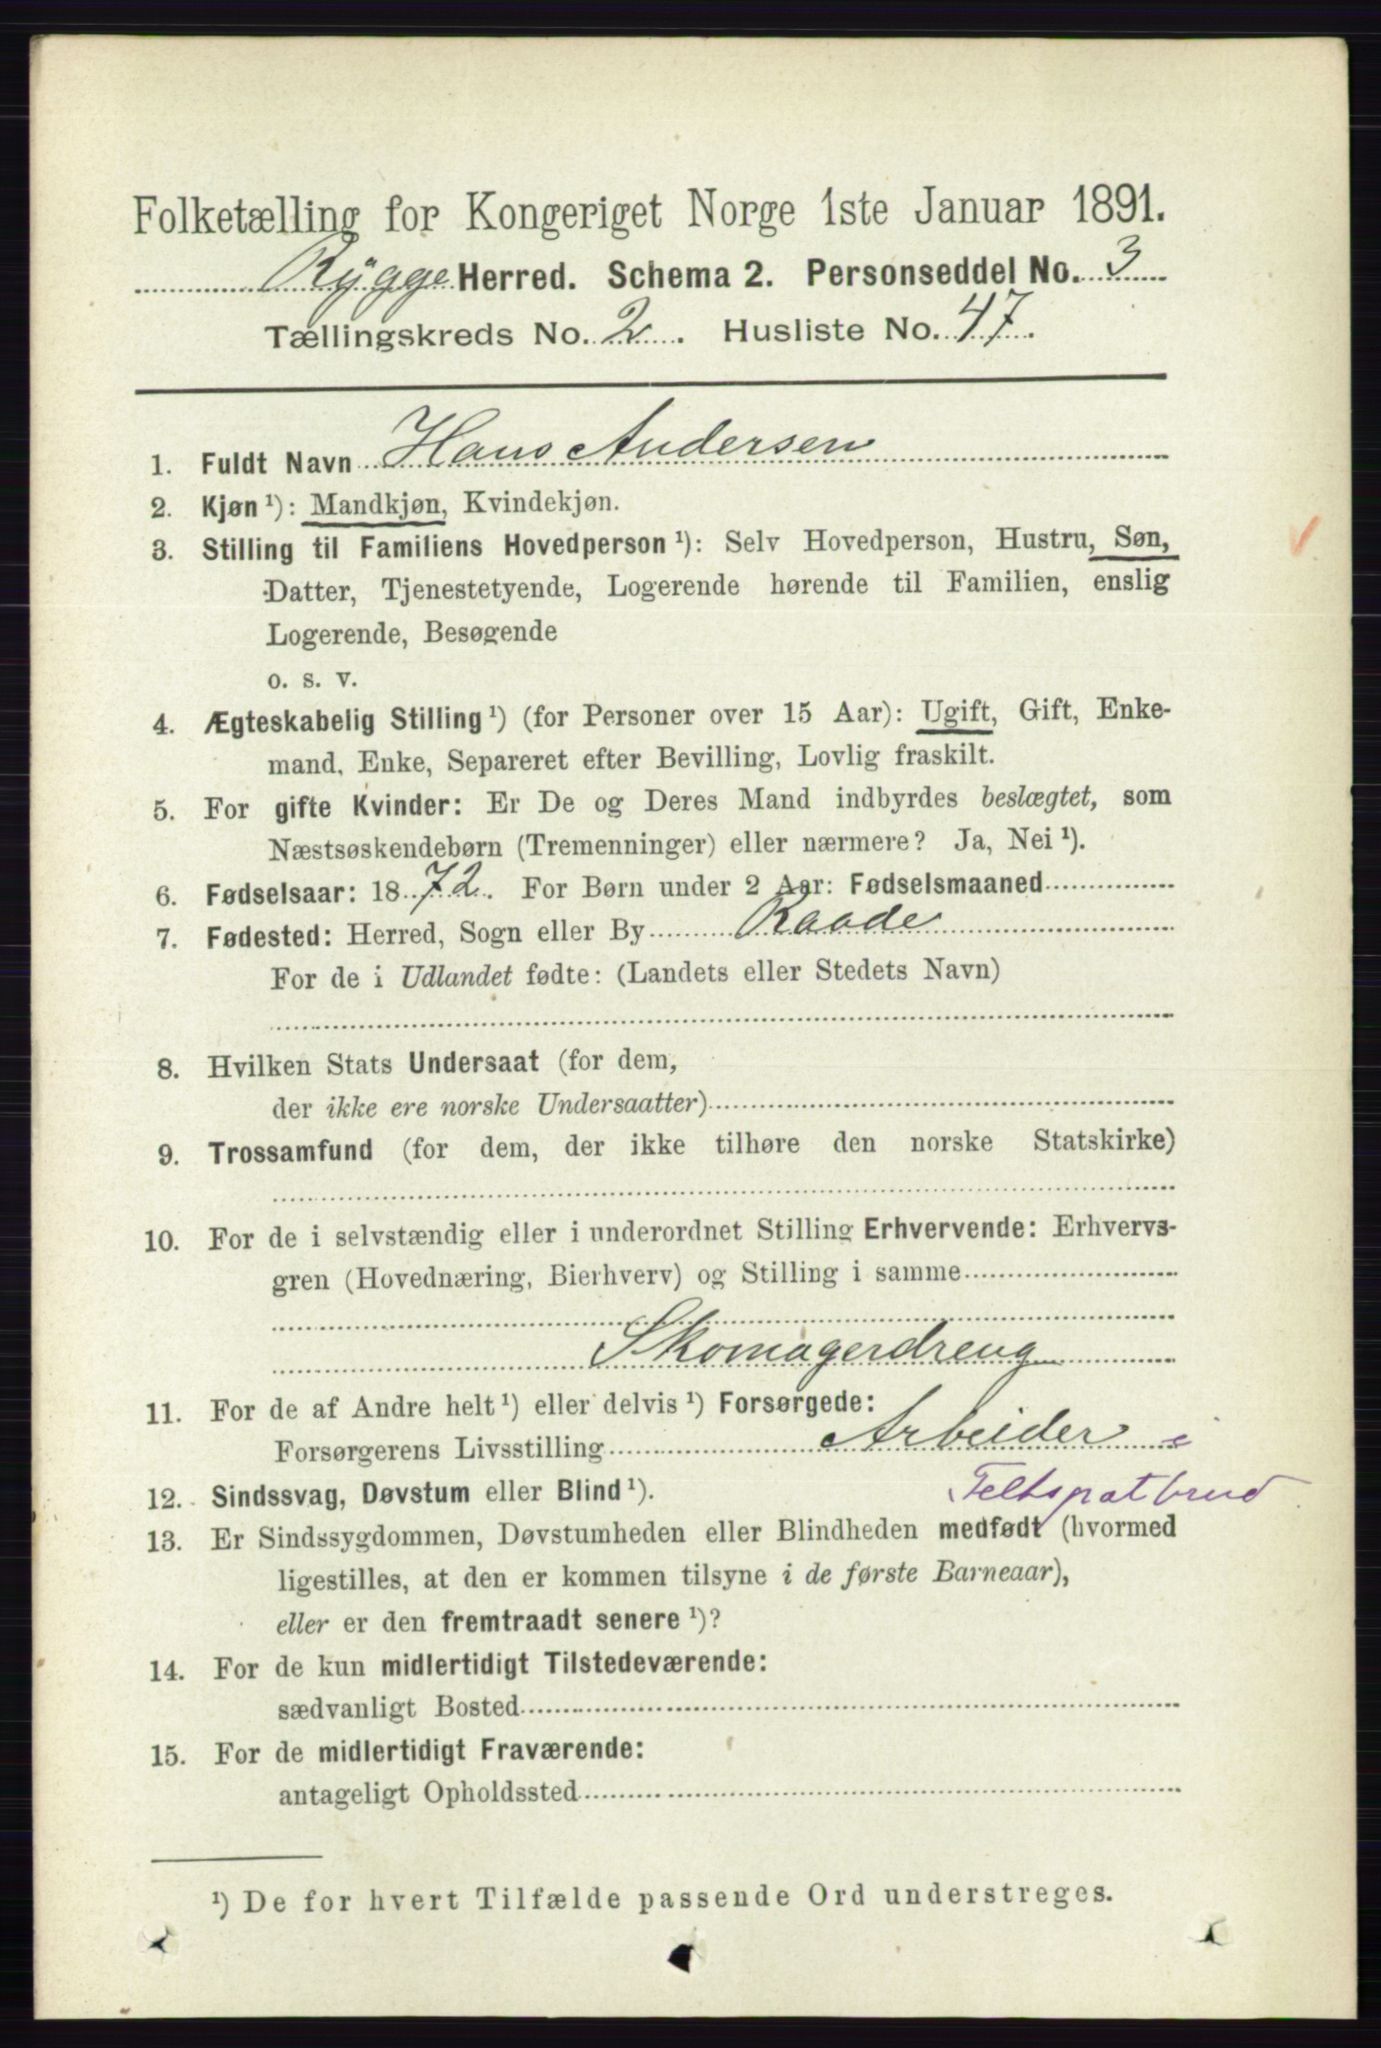 Folketælling for Kongeriget Norge 1ste Januar 1891.
Rygge Herred. Schema 2. Personseddel No. 3
Tællingskreds No. 2. Husliste No. 47.
1. Fuldt Navn Hans Andersen
2. Kjøn ¹): Mandkjøn, Kvindekjøn.
3. Stilling til Familiens Hovedperson ¹): Selv Hovedperson, Hustru, Søn,
Datter, Tjenestetyende, Logerende hørende til Familien, enslig
Logerende, Besøgende
o. s. v.
4. Ægteskabelig Stilling ¹) (for Personer over 15 Aar): Ugift, Gift, Enke-
mand, Enke, Separeret efter Bevilling, Lovlig fraskilt.
5. For gifte Kvinder: Er De og Deres Mand indbyrdes beslægtet, som
Næstsøskendebørn (Tremenninger) eller nærmere? Ja, Nei ¹).
6. Fødselsaar: 1872. For Børn under 2 Aar: Fødselsmaaned
7. Fødested: Herred, Sogn eller By Raade
For de i Udlandet fødte: (Landets eller Stedets Navn)
8. Hvilken Stats Undersaat (for dem,
der ikke ere norske Undersaatter)
9. Trossamfund (for dem, der ikke tilhøre den norske Statskirke)
10. For de i selvstændig eller i underordnet Stilling Erhvervende: Erhvervs-
gren (Hovednæring, Bierhverv) og Stilling i samme
Skomagerdreng
11. For de af Andre helt ¹) eller delvis ¹) Forsørgede:
Forsørgerens Livsstilling Arbeider i
Feltspatbrud
12. Sindssvag, Døvstum eller Blind ¹).
13. Er Sindssygdommen, Døvstumheden eller Blindheden medfødt (hvormed
ligestilles, at den er kommen tilsyne i de første Barneaar),
eller er den fremtraadt senere ¹)?
14. For de kun midlertidigt Tilstedeværende:
sædvanligt Bosted
15. For de midlertidigt Fraværende:
antageligt Opholdssted
¹) De for hvert Tilfælde passende Ord understreges.